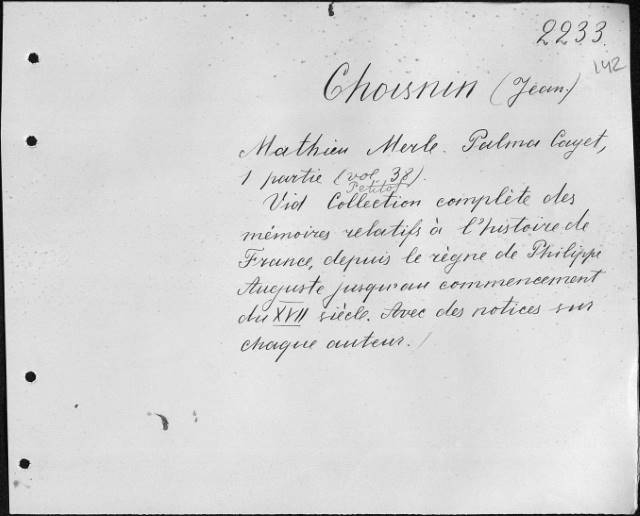 2233
142
Choisnin (Jean.)
Mathieu Merle. Palma Cayet,
1 partie (vol. 38).
Petitot
Vid Collection complète des
mémoires relatifs à l'histoire de
France, depuis le règne de Philippe
Auguste jusqu'au commencement
du XVII siècle. Avec des notices sur
chaque auteur.